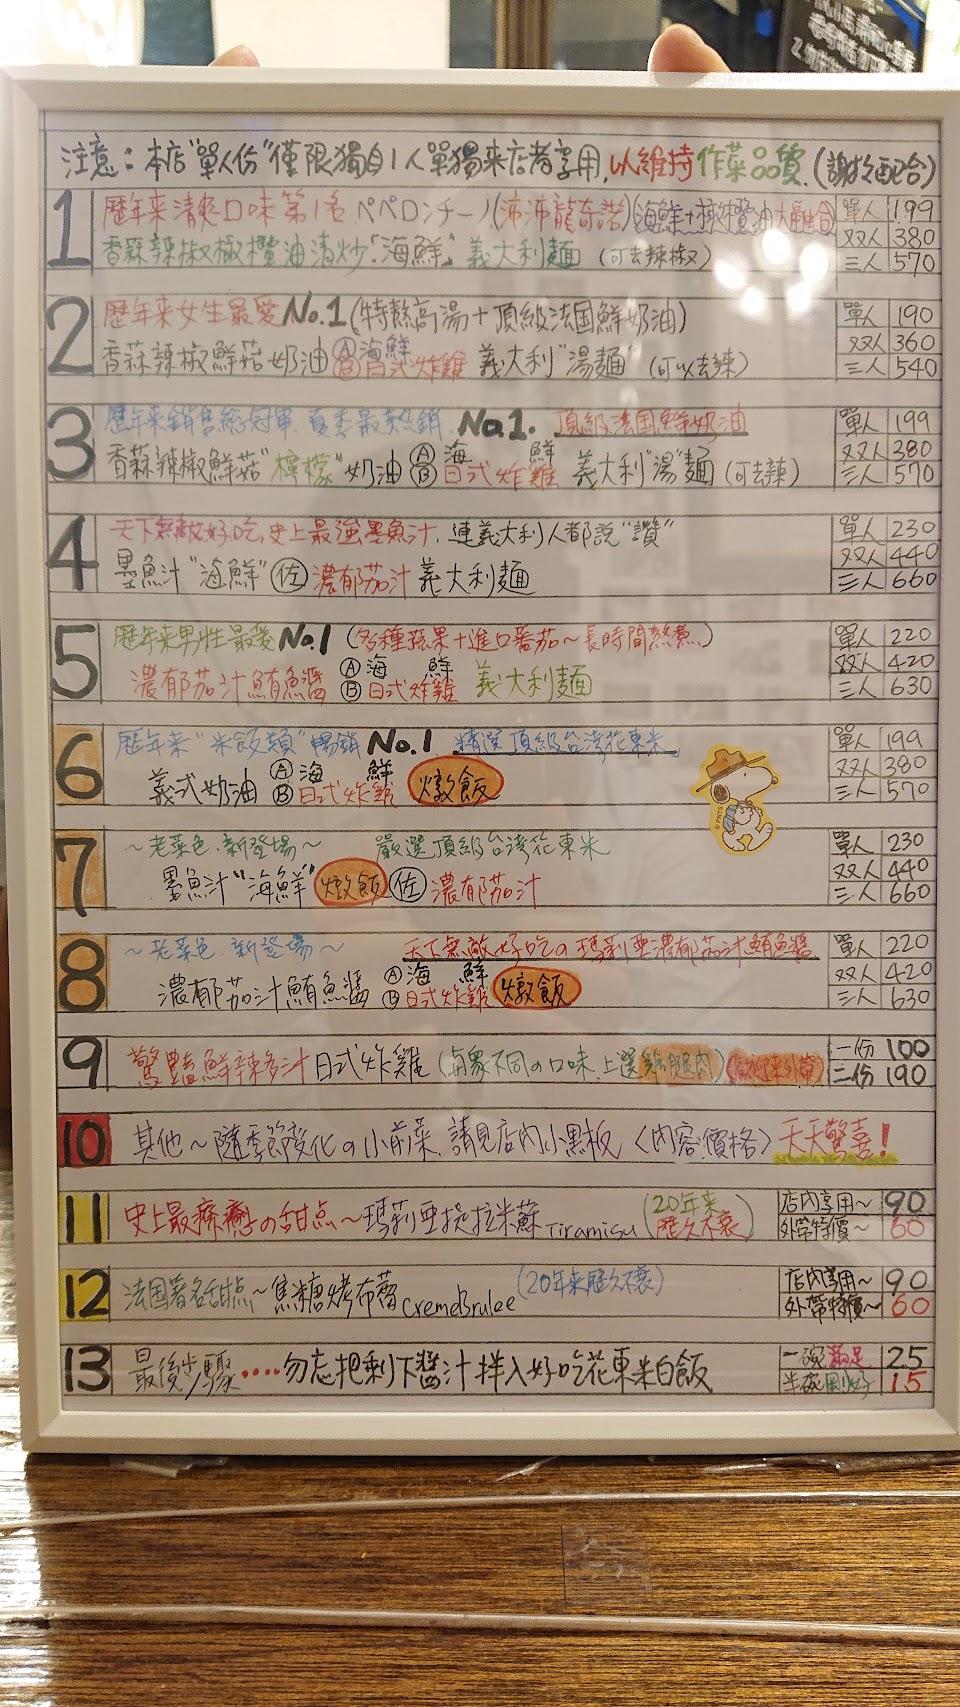 注意：本店"單人份"僅限獨自1人單獨來店者享用,以維持作菜品質.(謝謝配合)
1 歷年來清爽口味第1名 ペペロンチーノ(沛沛龍奇諾)(海鮮+橄欖油大融合) 單人 199
香蒜辣椒橄欖油清炒「海鮮」義大利麵 (可去辣椒) 双人 380
三人 570
2 歷年來女生最愛No.1(特熬高湯+頂級法国鮮奶油) 單人 190
香蒜辣椒鮮菇奶油 Ⓐ海鮮 Ⓑ日式炸雞 義大利"湯麵"(可以去辣) 双人 360
三人 540
3 歷年來銷售總冠軍.夏季最熱銷.No.1. 頂級法国鮮奶油 單人 199
香蒜辣椒鮮菇"檸檬"奶油 Ⓐ海鮮 Ⓑ日式炸雞 義大利"湯"麵(可去辣) 双人 380
三人 570
4 天下無敵好吃,史上最強墨魚汁,連義大利人都說"讚" 單人 230
墨魚汁"海鮮"佐濃郁茄汁義大利麵 双人 440
三人 660
5 歷年來男性最愛No.1 (多種蔬果+進口番茄~長時間熬煮) 單人 220
濃郁茄汁鮪魚醬 Ⓐ海鮮 Ⓑ日式炸雞 義大利麵 双人 420
三人 630
6 歷年來"米飯類"暢銷No.1 精選頂級台灣花東米 單人 199
義式奶油 Ⓐ海鮮 Ⓑ日式炸雞 燉飯 双人 380
三人 570
7 ~老菜色.新登場~ 嚴選頂級台灣花東米 單人 230
墨魚汁"海鮮"燉飯佐濃郁茄汁 双人 440
三人 660
8 ~老菜色.新登場~ 天下無敵好吃の瑪莉亞濃郁茄汁鮪魚醬 單人 220
濃郁茄汁鮪魚醬 Ⓐ海鮮 Ⓑ日式炸雞 燉飯 双人 420
三人 630
9 驚豔鮮辣多汁日式炸雞 (每象不同の口味.上選雞腿肉)(歡迎來外帶) 一份 100
二份 190
10 其他~隨季節變化の小前菜.請見店內小黑板〈內容.價格〉天天驚喜!
11 史上最療癒の甜点~瑪莉亞提拉米蘇Tiramisu (20年來歷久不衰) 店內享用~ 90
外帶特價~ 60
12 法国著名甜点~焦糖烤布蕾CremeBrulee (20年來歷久不衰) 店內享用~ 90
外帶特價~ 60
13 最後步驟....勿忘把剩下醬汁拌入好吃花東米白飯 一碗滿足 25
半碗剛好 15